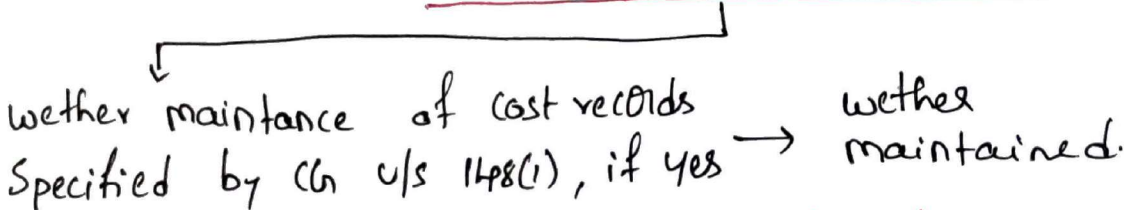 wether maintance of cost records
Specified by CG u/s 148(1), if yes → wether maintained.